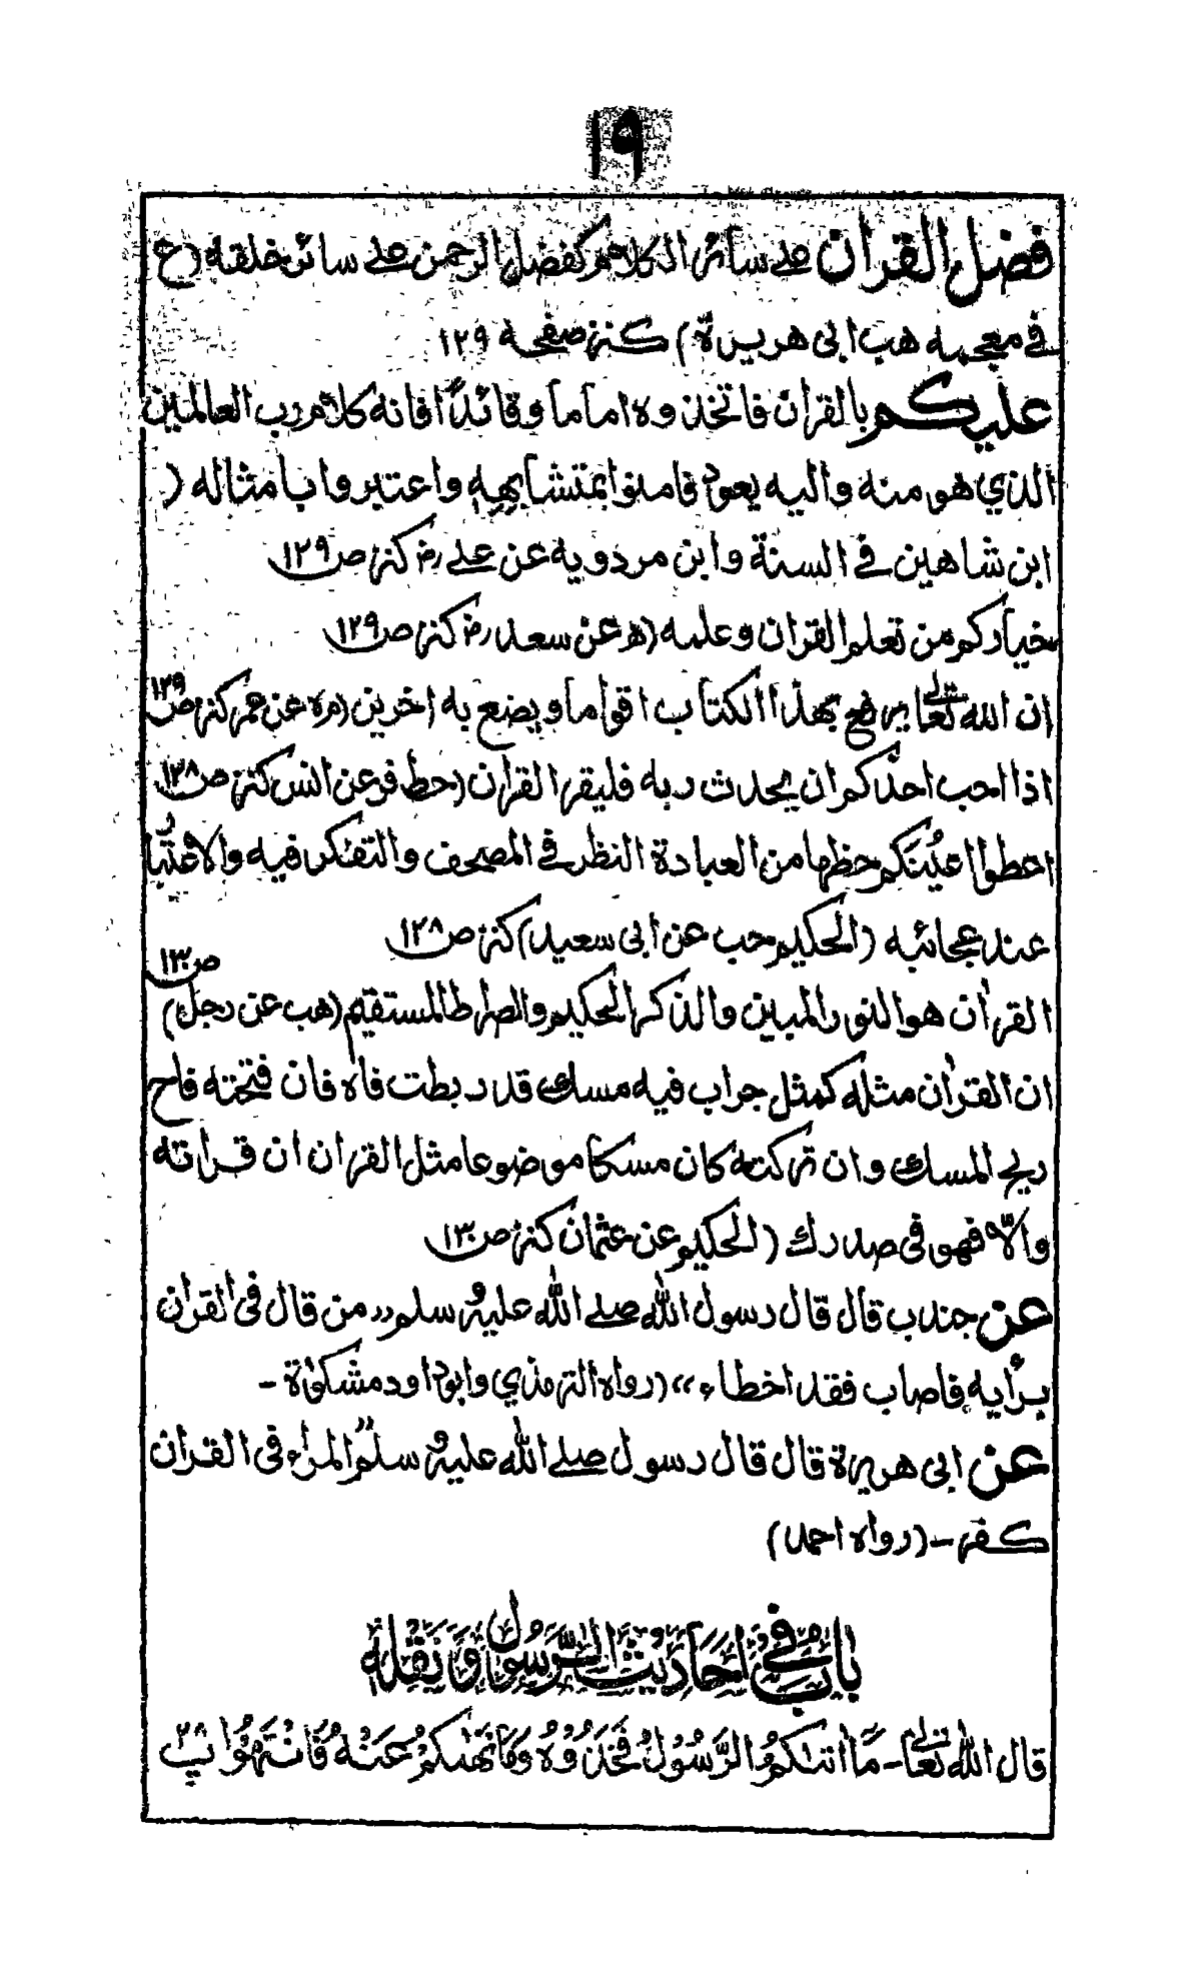 ١٩
فضل القرآن على سائر الكلام كفضل الرحمن على سائر خلقه (ع
في معجمه هب ابى هريرة) كنز صفحه ١٢٩
عليكم بالقرآن فاتخذوه اماما وقائدًا فانه كلام رب العالمين
الذي هو منه واليه يعود فامنوا بمتشابهه واعتبروا بامثاله (
ابن شاهين في السنة وابن مردويه عن على رض كنز ص ١٢٩
خياركم من تعلم القرآن وعلمه (ه عن سعد رض كنز ص ١٢٩
ان الله تعالى يرفع بهذا الكتاب اقواما ويضع به اخرين (م ه عن عمر كنز ص ١٢٩
اذا احب احدكم ان يحدث ربه فليقرا القرآن (خط فر عن انس كنز ص ١٢٨
اعطوا اعينكم حظها من العبادة النظر في المصحف والتفكر فيه والاعتبار
عند عجائبه (الحكيم حب عن ابى سعيد) كنز ص ١٢٨
القرآن هو النور المبين والذكر الحكيم والصراط المستقيم (هب عن رجل) ص ١٣٠
ان القرآن مثله كمثل جراب فيه مسك قد ربطت فاه فان فتحته فاح
ريح المسك وان تركته كان مسكا موضوعا مثل القرآن ان قرأته
والا فهو فى صدرك (الحكيم عن عثمان كنز ص ١٣٠
عن جندب قال قال رسول الله صلى الله عليه وسلم "من قال فى القرآن
برأيه فاصاب فقد اخطاء" (رواه الترمذي وابوداود مشكوٰة -
عن ابى هريرة قال قال رسول صلى الله عليه وسلم "المراء فى القرآن
كفر - (رواه احمد)
بَابٌ فِي اَحَادِيْثِ الرَّسُوْلِ وَنَقْلِهٖ
قال الله تعالى - مَّا اٰتٰىكُمُ الرَّسُوْلُ فَخُذُوْهُ وَمَا نَهٰىكُمْ عَنْهُ فَانْتَهُوْا پ ٢٨